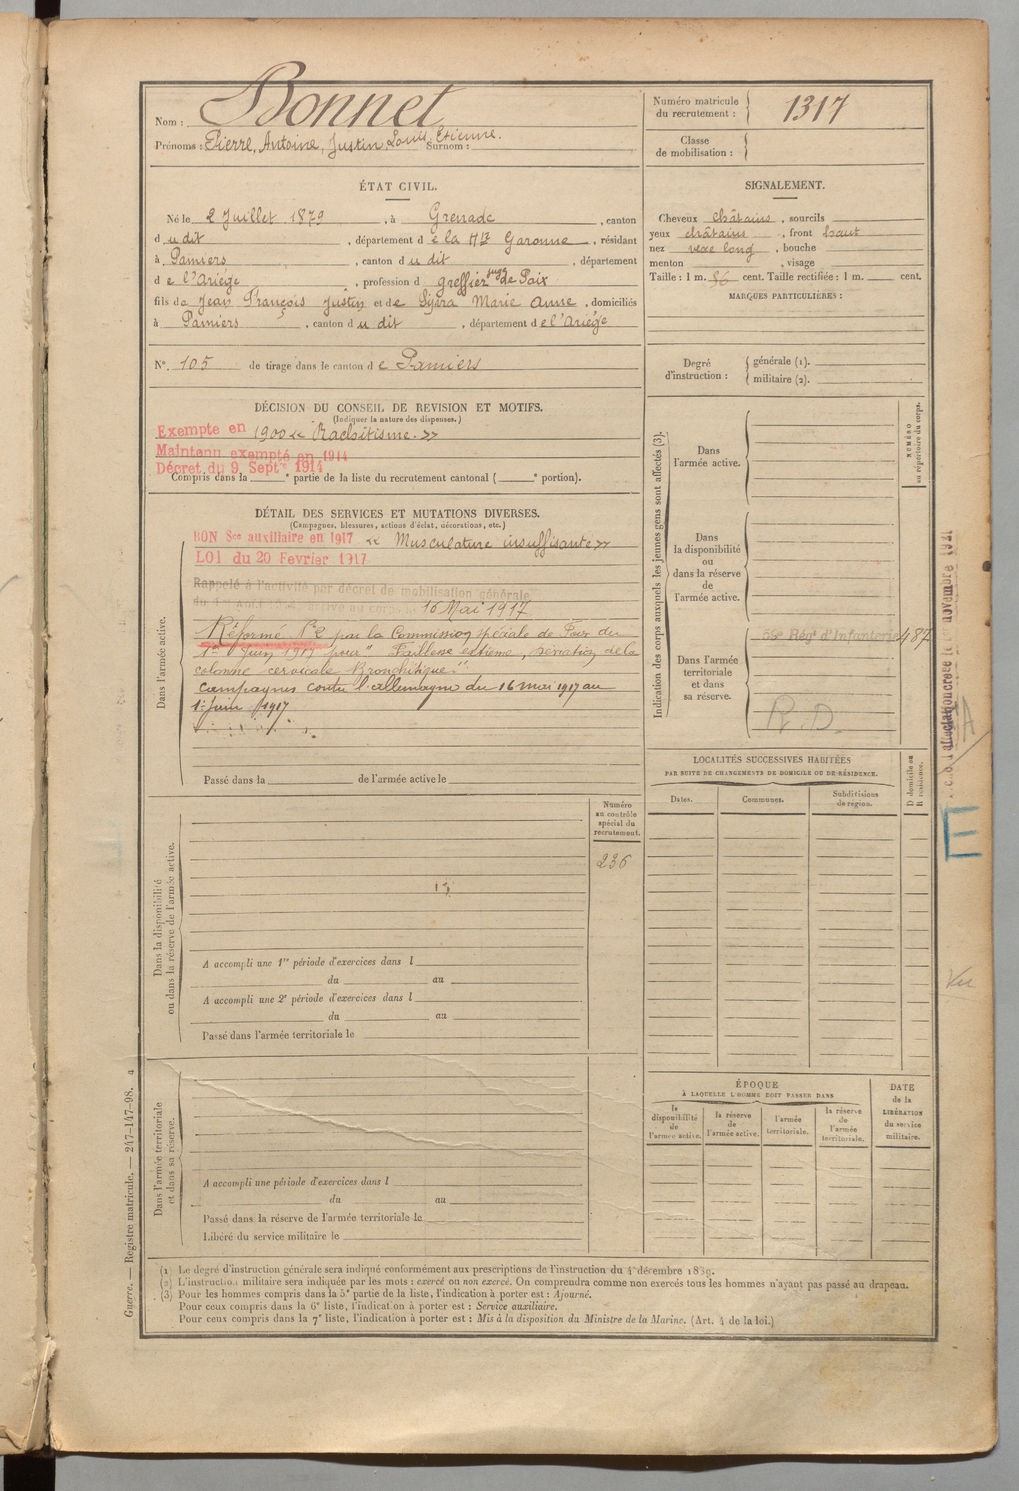 Nom : Bonnet
Prénoms : Pierre, Antoine, Justin Louis Etienne. Surnom :
Numéro matricule du recrutement : 1317
Classe de mobilisation :
ÉTAT CIVIL.
Né le 2 Juillet 1879, à Grenade, canton
d u dit, département d e la Hte Garonne, résidant
à Pamiers, canton d u dit, département
d e l'Ariège, profession d greffier juge de Paix
fils de Jean François Justin et de Marie Anne, domiciliés
à Pamiers, canton d u dit, département d e l'Ariège
N° 105 de tirage dans le canton d e Pamiers
SIGNALEMENT.
Cheveux châtains, sourcils
yeux châtains, front haut
nez long, bouche
menton, visage
Taille : 1 m. 86 cent. Taille rectifiée : 1 m. cent.
MARQUES PARTICULIÈRES :
Degré d'instruction : générale (1).
militaire (2).
DÉCISION DU CONSEIL DE REVISION ET MOTIFS.
(Indiquer la nature des dispenses.)
Exempte en 1900 « Rachitisme. »
Maintenu exempté en 1914
Décret du 9 Septre 1914
Compris dans la e partie de la liste du recrutement cantonal ( e portion).
DÉTAIL DES SERVICES ET MUTATIONS DIVERSES.
(Campagnes, blessures, actions d'éclat, décorations, etc.)
Dans l'armée active.
BON Sce auxiliaire en 1917 « Musculature insuffisante »
LOI du 20 Fevrier 1917
Rappelé à l'activité par décret de mobilisation générale
du août arrivé au corps le 16 Mai 1917
Réformé N°2 par la Commission spéciale de Foix du
1er Juin 1917 pour " Faiblesse extrême, déviation de la
colonne cervicale Bronchitique".
Campagnes contre l'allemagne du 16 mai 1917 au
1er Juin 1917
Passé dans la de l'armée active le
Indication des corps auxquels les jeunes gens sont affectés (3).
NUMÉRO au répertoire du corps.
Dans l'armée active.
Dans la disponibilité ou dans la réserve de l'armée active.
Dans l'armée territoriale et dans sa réserve.
59e Rég' d'Infanterie 487
R.D.
affectation novembre 1921
E
Vu
LOCALITÉS SUCCESSIVES HABITÉES
PAR SUITE DE CHANGEMENTS DE DOMICILE OU DE RÉSIDENCE.
Dates. Communes. Subdivisions de région. D domicile ou R résidence.
Dans la disponibilité ou dans la réserve de l'armée active.
Numéro au contrôle spécial du recrutement.
236
A accompli une 1re période d'exercices dans l
du au
A accompli une 2e période d'exercices dans l
du au
Passé dans l'armée territoriale le
Dans l'armée territoriale et dans sa réserve.
A accompli une période d'exercices dans l
du au
Passé dans la réserve de l'armée territoriale le
Libéré du service militaire le
ÉPOQUE
À LAQUELLE L'HOMME DOIT PASSER DANS
la disponibilité de l'armée active.
la réserve de l'armée active.
l'armée territoriale.
la réserve de l'armée territoriale.
DATE de la LIBÉRATION du service militaire.
(1) Le degré d'instruction générale sera indiqué conformément aux prescriptions de l'instruction du 4 décembre 1889.
(2) L'instruction militaire sera indiquée par les mots : exercé ou non exercé. On comprendra comme non exercés tous les hommes n'ayant pas passé au drapeau.
(3) Pour les hommes compris dans la 5e partie de la liste, l'indication à porter est : Ajourné.
Pour ceux compris dans la 6e liste, l'indication à porter est : Service auxiliaire.
Pour ceux compris dans la 7e liste, l'indication à porter est : Mis à la disposition du Ministre de la Marine. (Art. 4 de la loi.)
Guerre. — Registre matricule. — 247-147-98.